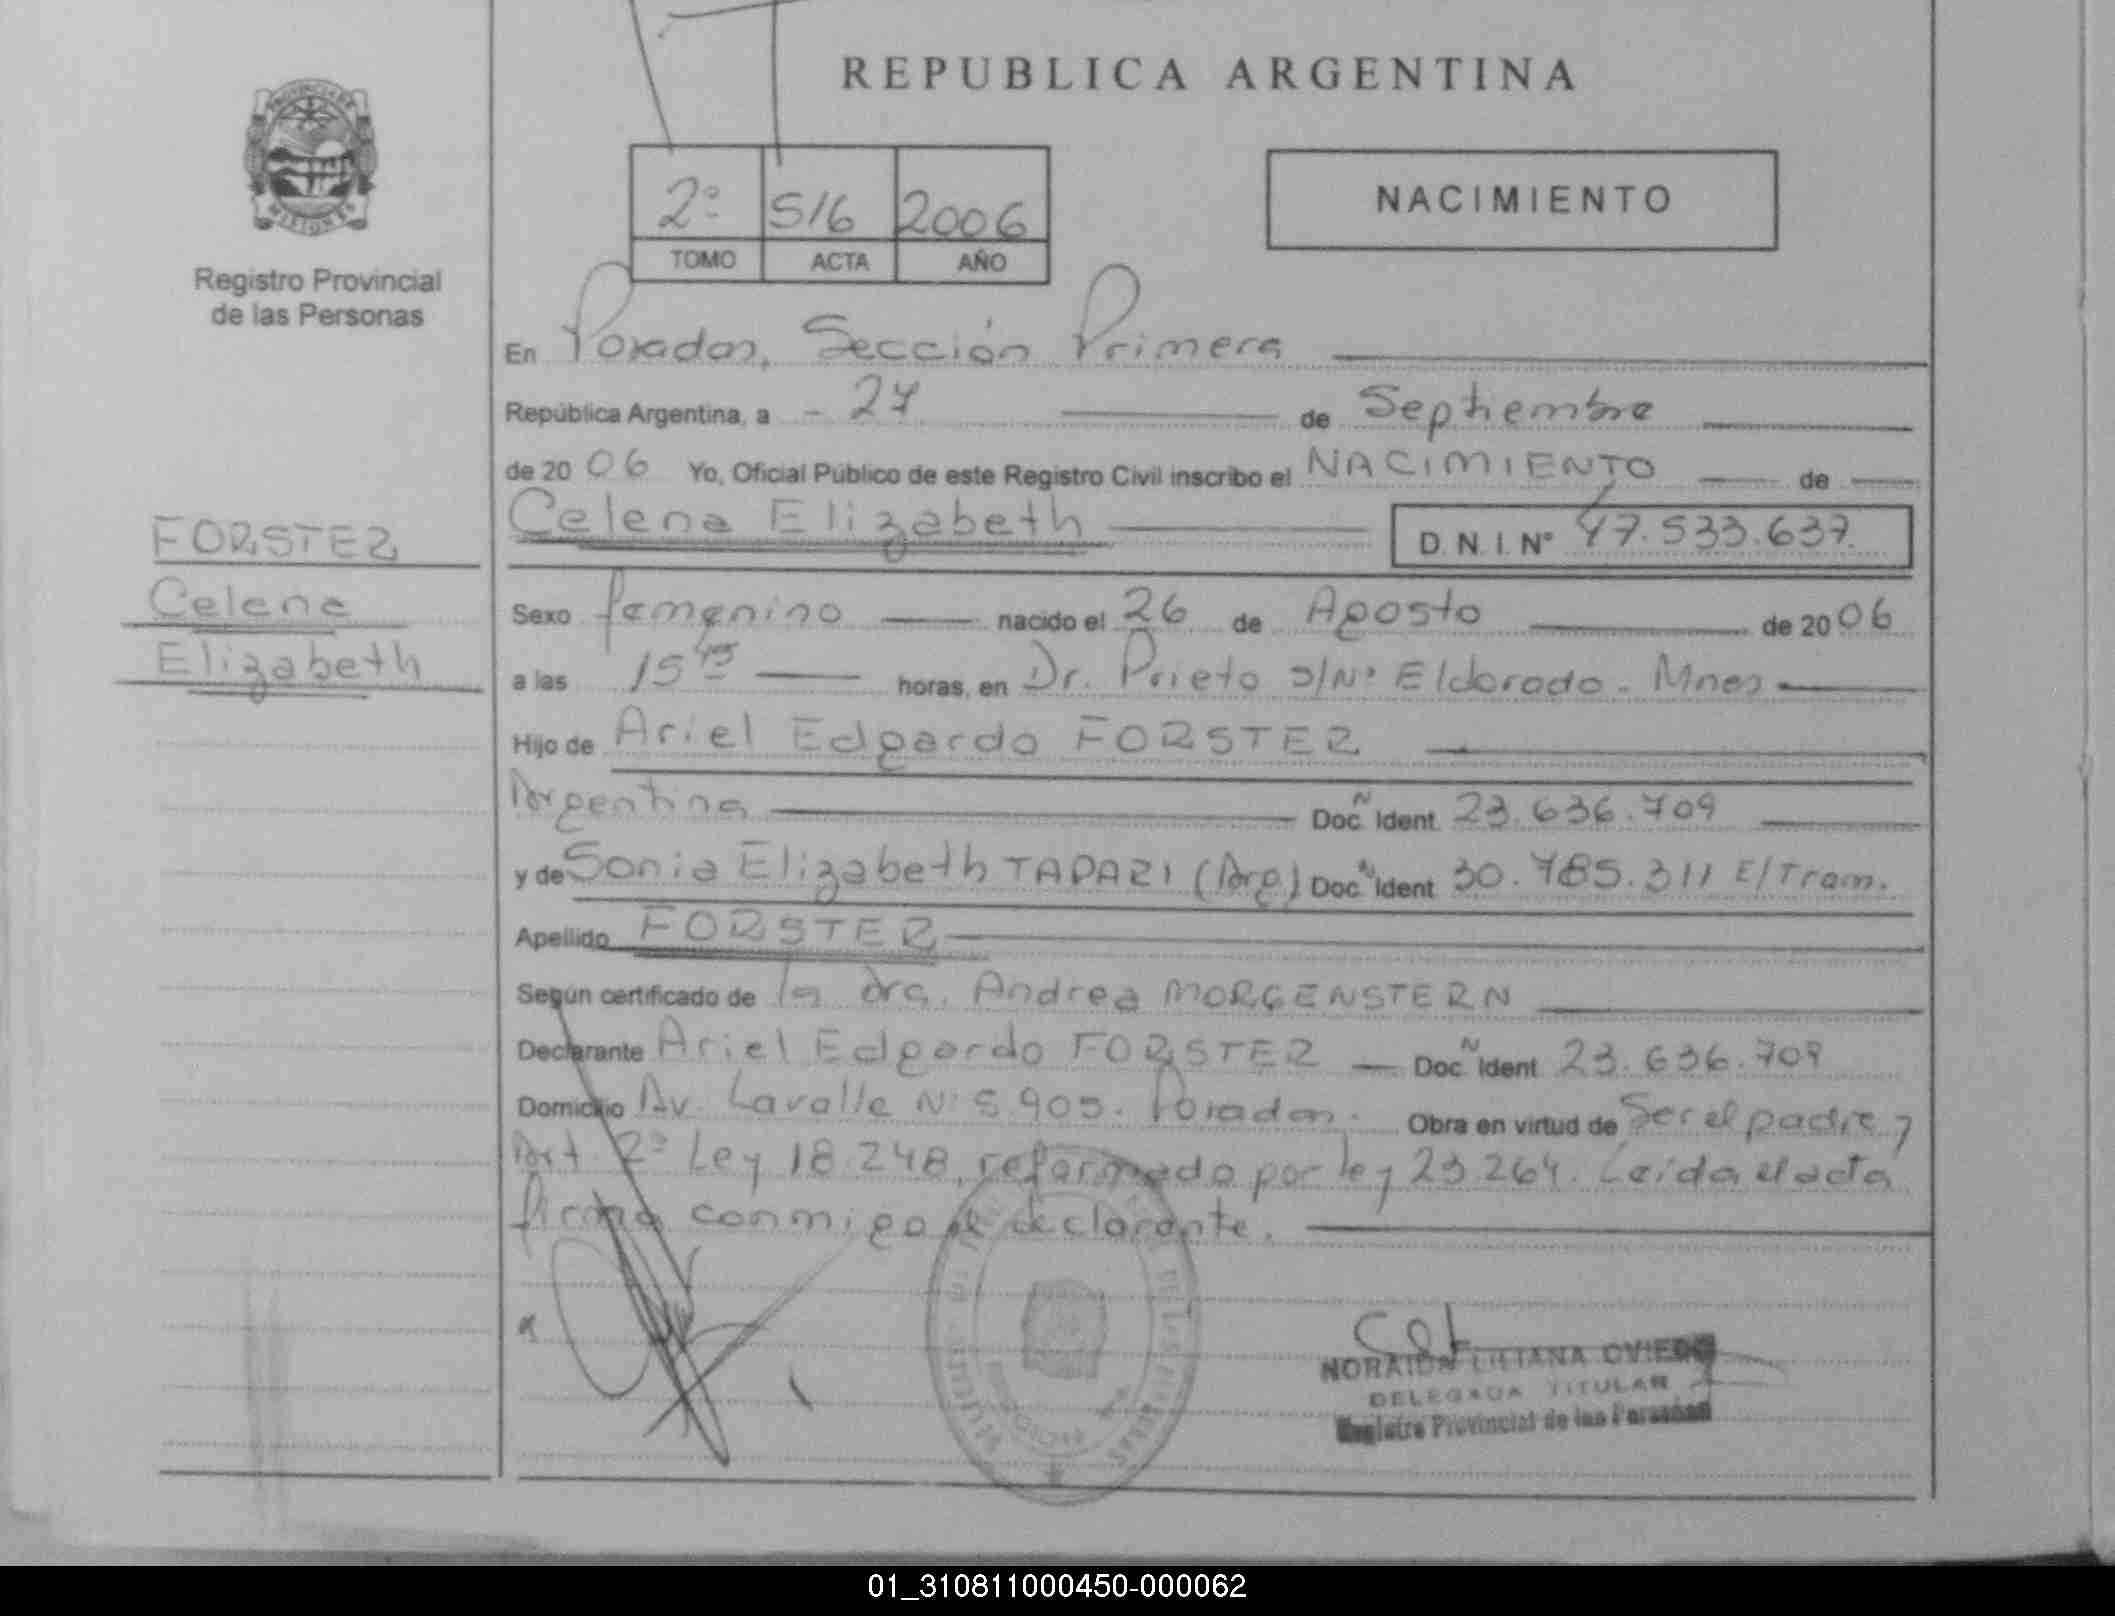 REPUBLICA ARGENTINA
PROVINCIA DE
MISIONES
Registro Provincial
de las Personas
2º 516 2006
TOMO ACTA AÑO
NACIMIENTO
En Posadas, Sección Primera
República Argentina, a - 27 de Septiembre
de 2006 Yo, Oficial Público de este Registro Civil inscribo el NACIMIENTO de
Celena Elizabeth D. N. I. Nº 47.533.637.
FORSTER
Celena
Elizabeth
Sexo femenino nacido el 26 de Agosto de 2006
a las 15 45 horas, en Dr. Prieto s/Nº Eldorado - Mnes
Hijo de Ariel Edgardo FORSTER
Argentina Doc. N Ident. 23.636.709
y de Sonia Elizabeth TAPARI (Arg) Doc. N Ident. 30.785.311 E/Tram.
Apellido FORSTER
Según certificado de la dra. Andrea MORGENSTERN
Declarante Ariel Edgardo FORSTER Doc. N Ident. 23.636.709
Domicilio Av. Lavalle Nº 5.905. Posadas. Obra en virtud de Ser el padre y
Art. 2º Ley 18.248, reformado por ley 23.264. Leída el acta
firma conmigo el declarante.
NORAIDA LILIANA OVIEDO
DELEGADA TITULAR
Registro Provincial de las Personas
01_310811000450-000062